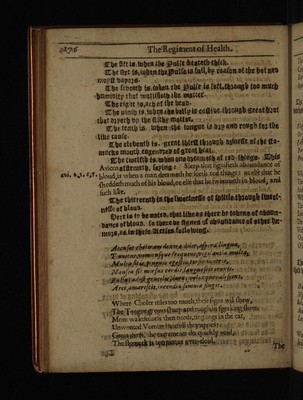 The Regiment of Health.
The fift is, when the Pulse beateth thick.
The sixt is, when the Pulse is full, by reason of the hot and
moyst vapors.
The seventh is, when the Pulse is soft, through too much
humidity that mollifieth the matter.
The eight is, ach of the head.
The ninth is, when the belly is costive, through great heat
that dryeth up the filthy matter.
The tenth is when the tongue is dry and rough for the
like cause.
The eleventh is, great thirst through drynesse of the sto-
macks mouth engendred of great heat.
The twelfth is, when one dreameth of red things. This
Avicen affirmeth, saying: Sleep that signifieth abundance of
bloud, is when a man dreameth he seeth red things: or else that he
sheddeth much of his bloud, or else that he swimmeth in bloud, and
such like.
The thirteenth is, the sweetnesse of spittle through sweet-
nesse of bloud.
Here is to be noted, that like as there be tokens of aboun-
dance of bloud, so there be signes of aboundance of other hu-
mors, as in these verses following.
Accusat choleram dextræ dolor, aspera lingua,
Tinnitus, vomitusque frequens, vigilantia multa,
Multa sitis, pinguis egestio, tormina ventris,
Nausea fit morsus cordis, languescit orexis,
Pulsus adest gracilis, durus, veloxque calescens
Aret, amarescit, incendia somnia fingit.
Where Choler rules too much, these signs will shew,
The Tongue grows sharp and rough in speaking
More wakefulness then needs, ringings in the ear,
Unwonted Vomits
The stomack is
The